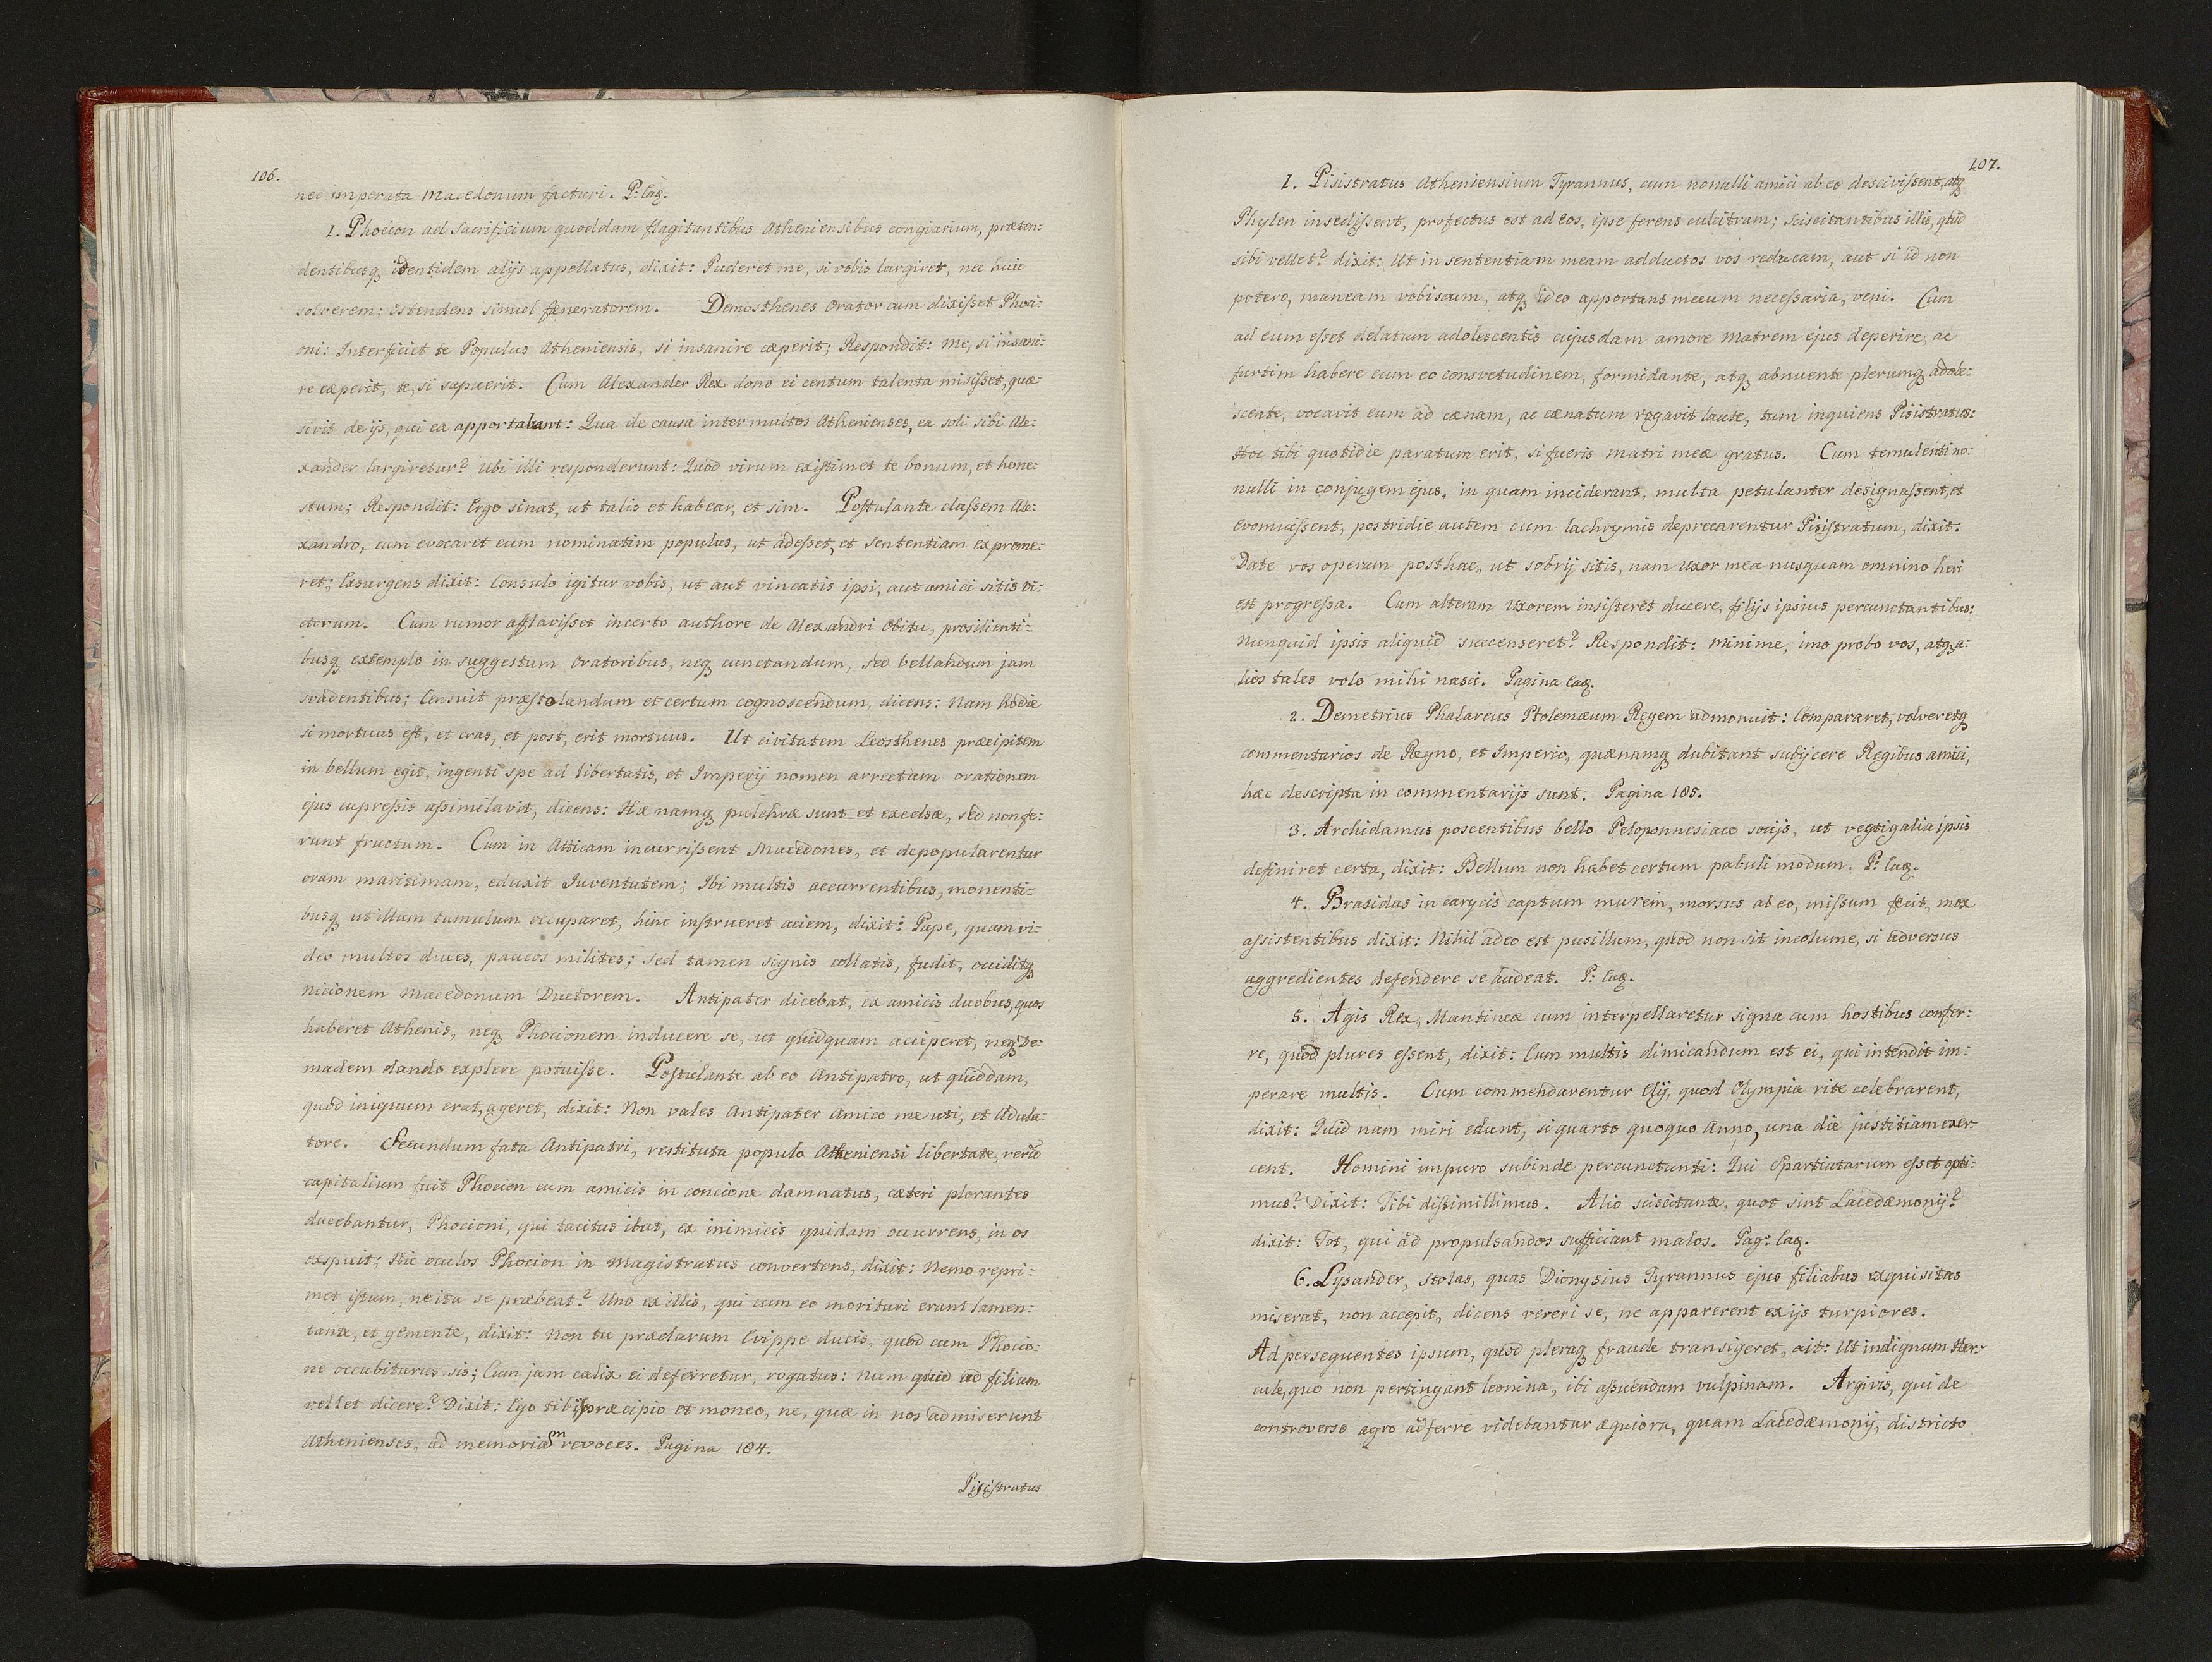 106.
nec imperata Macedonum facturi. P: eaq.
1. Phocion ad Sacrificium quoddam flagitantibus Atheniensibus congiarium, præten:
dentibusq identidem alijs appellatus, dixit: Puderet me, si vobis largirer, nec huic
solverem; ostendens simul fæneratorem. Demosthenes Orator cum dixisset Phoci:
oni: Interficiet te Populus Atheniensis, si insanire cæperit; Respondit: Me, si insani:
re cæperit, te, si sapuerit. Cum Alexander Rex dono ei centum talenta misisset, quæ:
sivit de ijs, qui ea apportabant: Qua de causa inter multos Athenienses, ea soli sibi Ale:
xander largiretur? Ubi illi responderunt: Quod virum existimet te bonum, et hone:
stum; Respondit: Ergo sinat, ut talis et habear, et sim. Postulante classem Ale:
xandro, cum evocaret eum nominatim populus, ut adesset, et sententiam exprome:
ret; Exsurgens dixit: Consulo igitur vobis, ut aut vincatis ipsi, aut amici sitis vi:
ctorum. Cum rumor afflavisset incerto authore de Alexandri Obitu, prosilienti:
busq extemplo in suggestum Oratoribus, neq cunctandum, sed bellandum jam
svadentibus; Censuit præstolandum et certum cognoscendum, dicens: Nam hodie
si mortuus est, et cras, et post, erit mortuus. Ut civitatem Leosthenes præcipitem
in bellum egit, ingenti spe ad libertatis, et Imperij nomen arrectam orationem
ejus cupressis assimilavit, dicens: Hæ namq pulchræ sunt et excelsæ, sed non fe:
runt fructum. Cum in Atticam incurrissent Macedones, et depopularentur
oram maritimam, eduxit Juventutem; Ibi multis accurrentibus, monenti:
busq ut illum tumulum occuparet, hinc instrueret aciem, dixit: Pape, quam vi:
deo multos duces, paucos milites; sed tamen signis collatis, fudit, occiditq
Nicionem Macedonum Ductorem. Antipater dicebat, ex amicis duobus, quos
haberet Athenis, neq Phocionem inducere se, ut quidquam acciperet, neq De:
madem dando explere potuisse. Postulante ab eo Antipatro, ut quiddam,
quod iniquum erat, ageret, dixit: Non vales Antipater Amico me uti, et Adula:
tore. Secundum fata Antipatri, restituta populo Atheniensi libertate, rerū
capitalium fuit Phocion cum amicis in concione damnatus, cæteri plorantes
ducebantur, Phocioni, qui tacitus ibat, ex inimicis quidam occurrens, in os
exspuit; Hic oculos Phocion in Magistratus convertens, dixit: Nemo repri:
met istum, ne ita se præbeat? Uno ex illis, qui cum eo morituri erant lamen:
tante, et gemente, dixit: Non tu præclarum Evippe ducis, quod cum Phocio:
ne occubiturus sis; Cum jam calix ei deferretur, rogatus: Num quid ad filium
vellet dicere? Dixit: Ego tibi præcipio et moneo, ne, quæ in nos admiserunt
Athenienses, ad memoriam revoces. Pagina 184.
Pisistratus
107.
1. Pisistratus Atheniensium Tyrannus, cum nonulli amici ab eo descivissent, atq
Phylen insedissent, profectus est ad eos, ipse ferens culcitram; sciscitantibus illis, quid
sibi vellet? dixit: Ut in sententiam meam adductos vos reducam, aut si id non
potero, maneam vobiscum, atq ideo apportans mecum necessaria, veni. Cum
ad eum esset delatum adolescentis cujusdam amore matrem ejus deperire, ac
furtim habere cum eo consvetudinem, formidante, atq abnuente plerumq adole:
scente, vocavit eum ad cænam, ac cænatum rogavit laute, tum inquiens Pisistratus:
Hoc tibi quotidie paratum erit, si fueris matri meæ gratus. Cum temulenti no:
nulli in conjugem ejus, in quam inciderant, multa petulanter designassent, et
evomuissent, postridie autem cum lachrymis deprecarentur Pisistratum, dixit:
Date vos operam posthac, ut sobrij sitis, nam uxor mea nusquam omnino heri
est progressa. Cum alteram uxorem insisteret ducere, filijs ipsius percunctantibus:
Nunquid ipsis aliquid succenseret? Respondit: Minime, imo probo vos, atq a:
lios tales volo mihi nasci. Pagina eaq.
2. Demetrius Phalareus Ptolemæum Regem admonuit: Compararet, volveretq
commentarios de Regno, et Imperio, quænamq dubitant subijcere Regibus amici,
hæc descripta in commentarijs sunt. Pagina 185.
3. Archidamus poscentibus bello Peloponnesiaco socijs, ut vectigalia ipsis
definiret certa, dixit: Bellum non habet certum pabuli modum. P: eaq.
4. Brasidas in carycis captum murem, morsus ab eo, missum fecit, mox
assistentibus dixit: Nihil adeo est pusillum, quod non sit incolume, si adversus
aggredientes defendere se audeat. P: eaq.
5. Agis Rex, Mantineæ cum interpellaretur signa cum hostibus confer:
re, quod plures essent, dixit: Cum multis dimicandum est ei, qui intendit im:
perare multis. Cum commendarentur Elij, quod Olympia rite celebrarent,
dixit: Quid nam miri edunt, si quarto quoquo Anno, una die justitiam exer:
cent. Homini impuro subinde percunctanti: Qui Spartiatarum esset opti:
mus? Dixit: Tibi dissimillimus. Alio sciscitante, quot sint Lacedæmonij?
dixit: Tot, qui ad propulsandos sufficiant malos. Pag: eaq.
6. Lysander, stolas, quas Dionysius Tyrannus ejus filiabus exquisitas
miserat, non accepit, dicens vereri se, ne apparerent ex ijs turpiores.
Ad persequentes ipsum, quod pleraq fraude transigeret, ait: Ut indignum Her:
cule, quo non pertingant leonina, ibi assuendam vulpinam. Argivis, qui de
controverso agro adferre videbantur æquiora, quam Lacedæmonij, districto